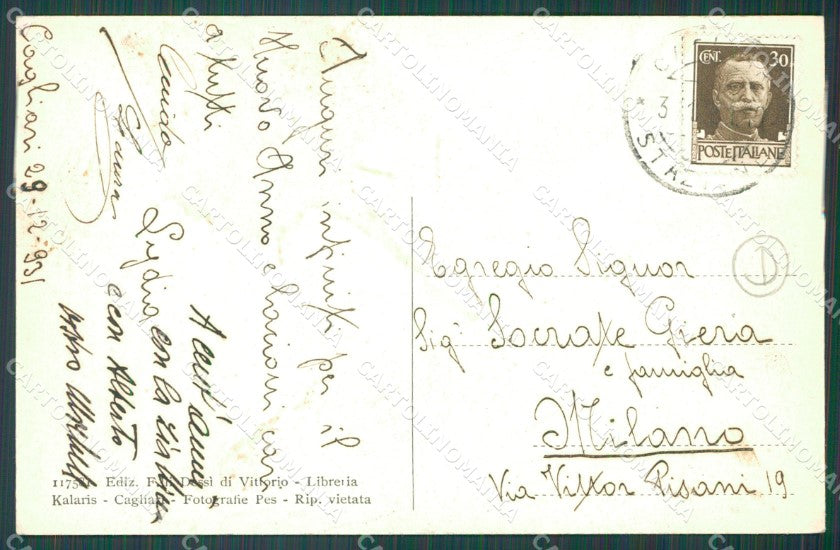 Cagliari 29-12-931
Auguri infiniti per il
Nuovo Anno e bacioni cari
a tutti
Guido
Lydia con la zia
e con Alberto
CENT. 30
POSTE ITALIANE
3
Egregio Signor
Sig. Socrate Giera
e famiglia
Milano
Via Vittor Pisani 19
Ediz. F.lli Dessì di Vittorio - Libreria
Kalaris - Cagliari - Fotografie Pes - Rip. vietata
CARTOLINOMANIA